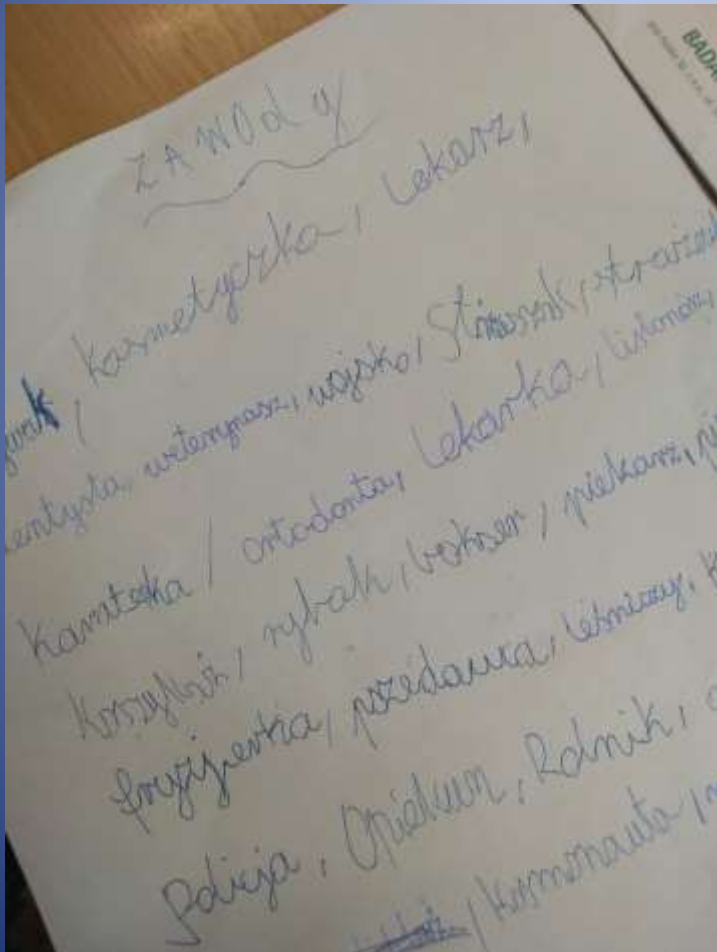 BADA
ZAWOdy
kosmetyczka, lekarz,
entysta, weterynarz, wojsko, strażak
karateka, ortodonta, lekarka, listonosz,
koszykarz, rybak, bokser, piekarz,
fryzjerka, przedawca, leśniczy, K
Policja, Opiekun, Rolnik,
, kosmonauta,